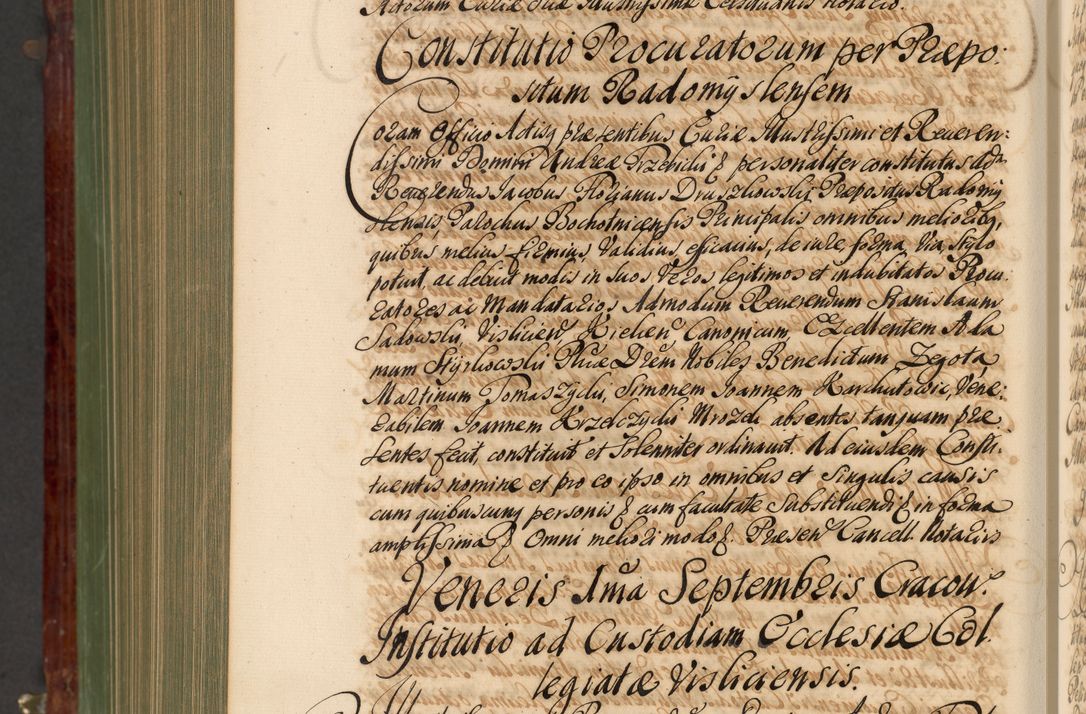 Actorum Curiæ suæ Illustrissimæ Celsitudinis Notario.
Constitutio Procuratorum per Præpo:
situm Radomyslensem
Coram Officio Actisq præsentibus Curiæ Illustrissimi et Reveren:
dissimi Domini Andreæ Trzebicki & personaliter constitutus
Reverendus Jacobus Florianus Druszkowski Præpositus Radomy
slensis Parochus Bochotnicensis Principalis omnibus melioribq,
quibus melius firmius, validius, efficacius, de iure forma, via, stylo
potuit, ac debuit modis in suos veros legitimos et indubitatos Procu:
ratores ac Mandatarios, Admodum Reverendum Stanislaum
Sadowski, Vislicien, Kielcien, Canonicum, Excellentem Ada
mum Styrkowski Phiæ Drem Nobiles Benedictum Zegota
Martinum Tomaszycki, Simonem Joannem Karchutowic, Vene:
rabilem Joannem Krzelczycki Mrozek absentes tanquam præ
sentes fecit, constituit et solenniter ordinavit. Ad eiusdem Consti:
tuentis nomine et pro eo ipso in omnibus et singulis causis
cum quibuscunq personis & cum facultate substituendi & in forma
amplissima & Omni meliori modo &. Præsen Cancell. Notariis
Veneris Ima Septembris Cracov.
Institutio ad Custodiam Ecclesiæ Col
legiatæ Visliciensis.